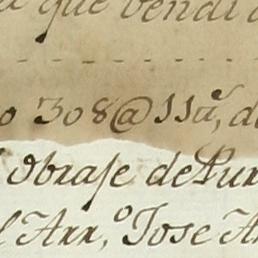 que vendi
308@11
obraje de Pur
Arr,º Jose A